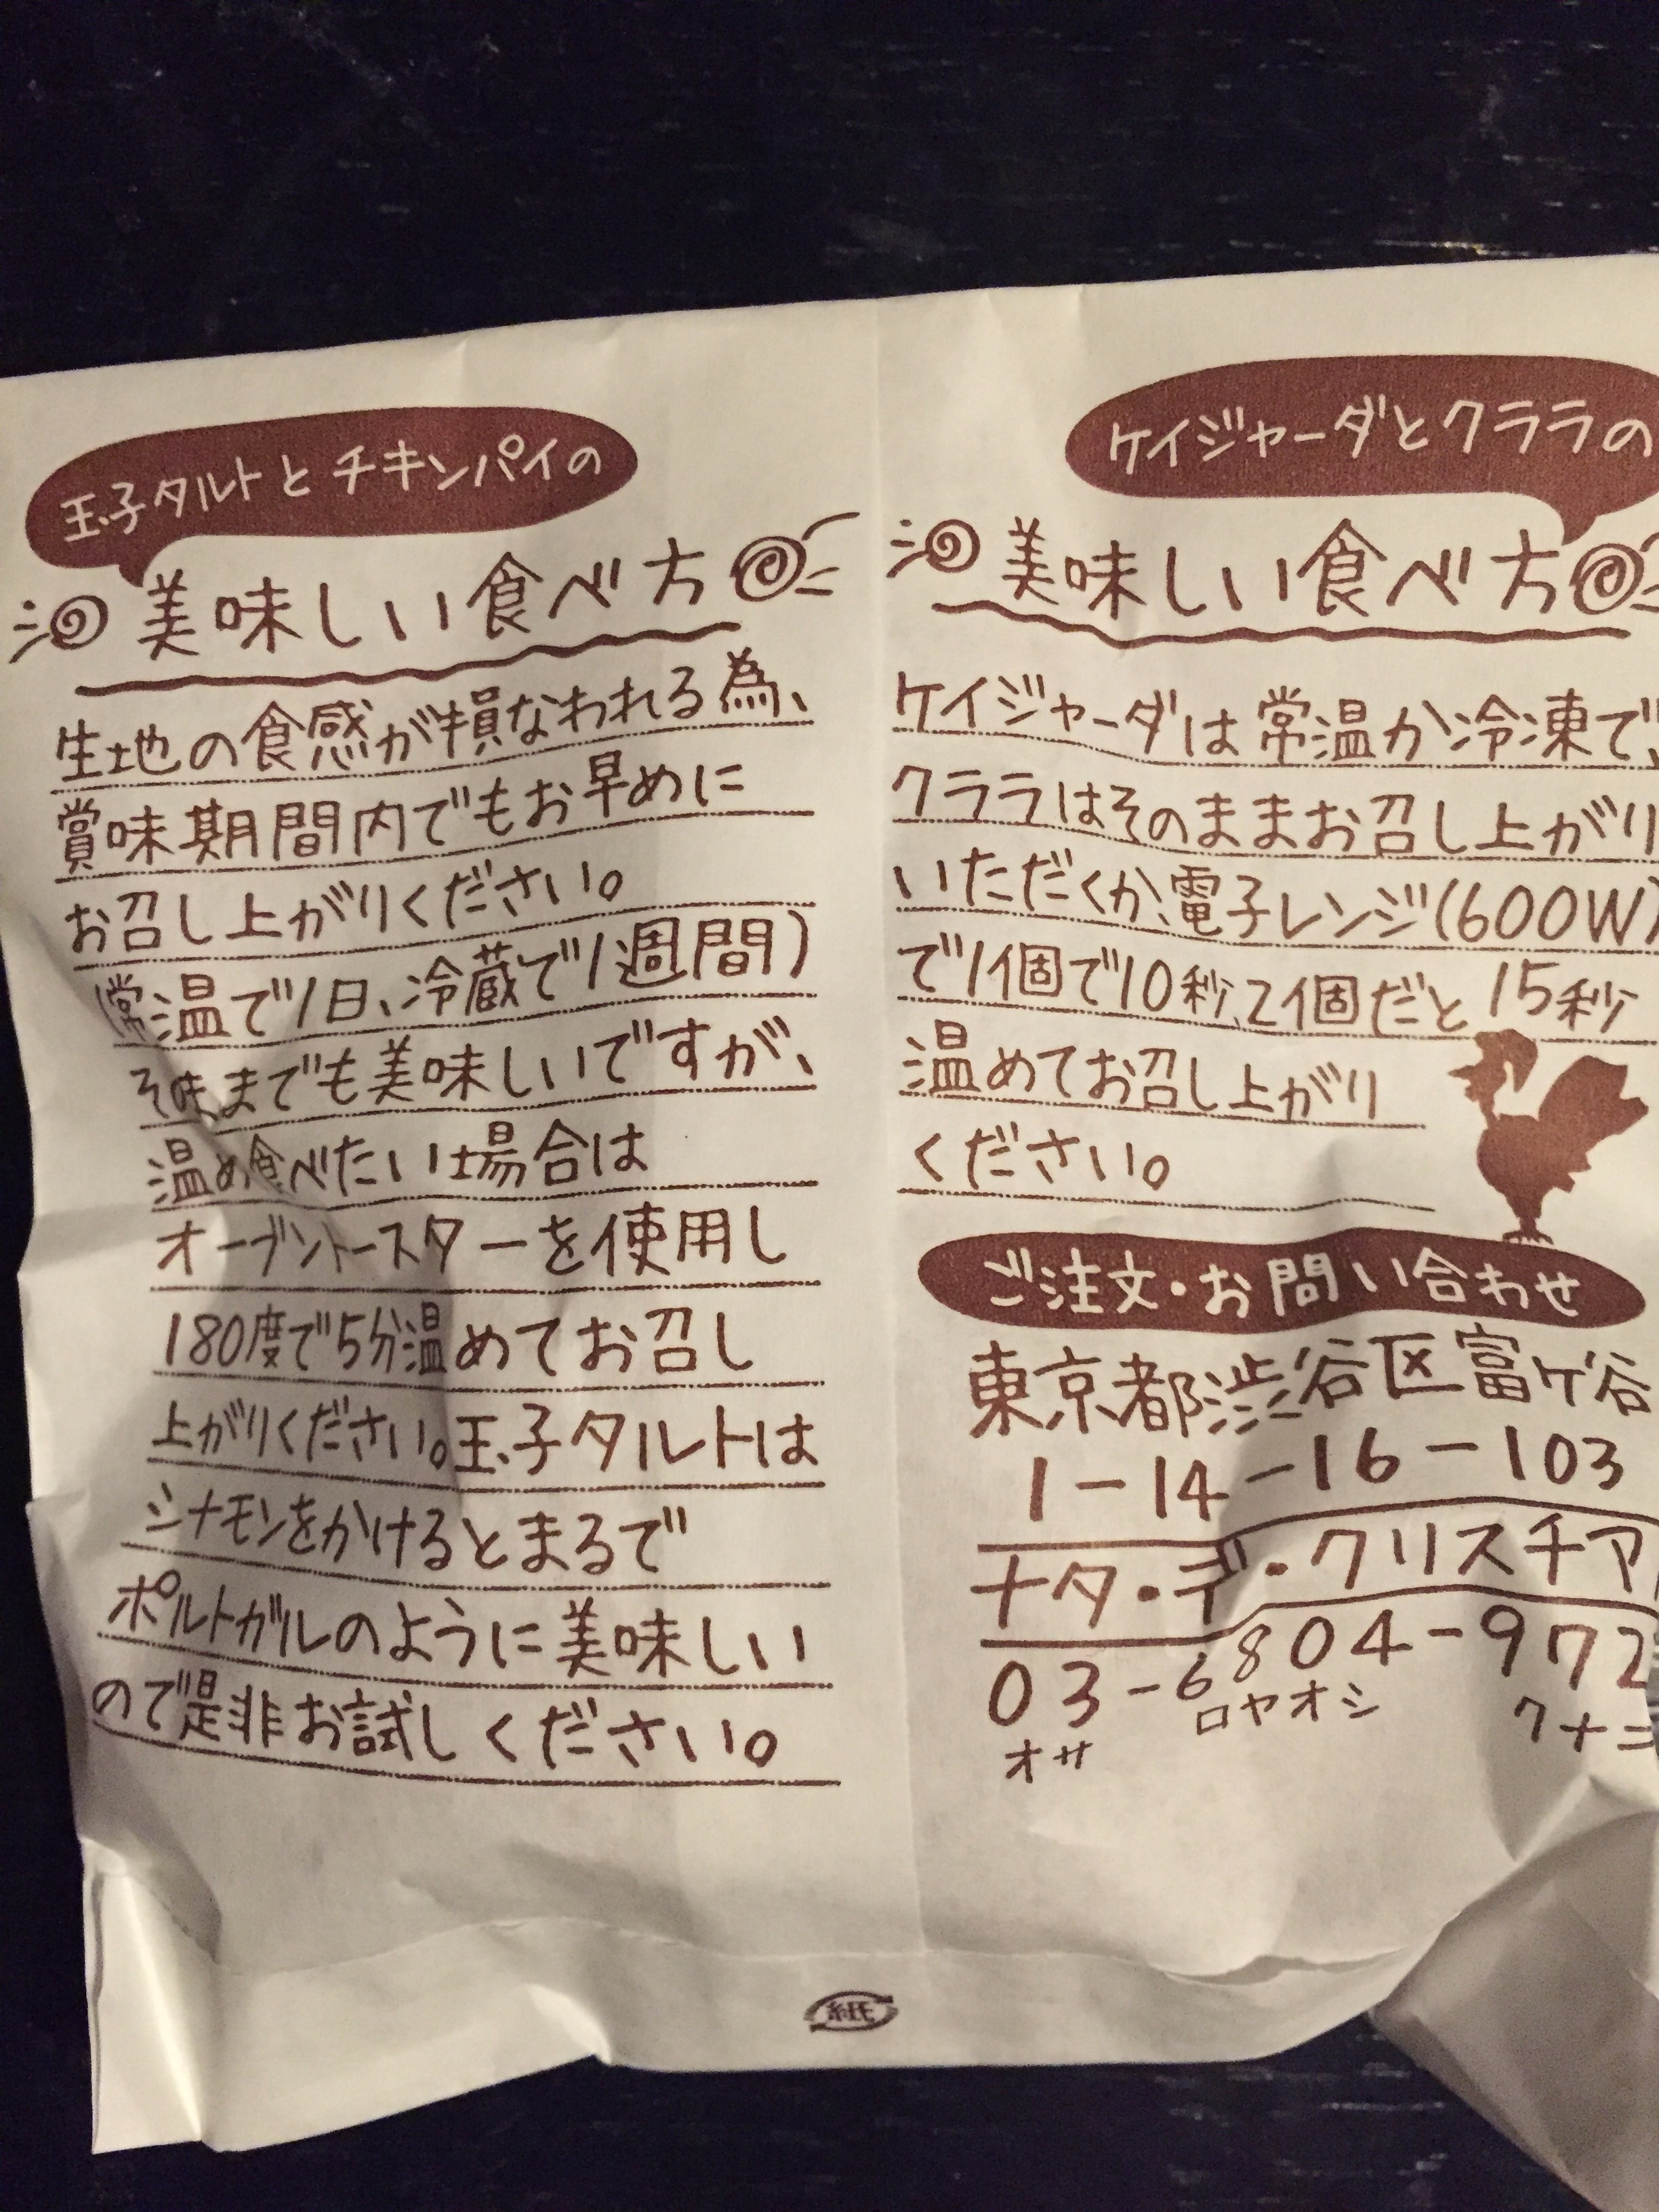 玉子タルトとチキンパイの
美味しい食べ方
生地の食感が損なわれる為、
賞味期間内でもお早めに
お召し上がりください。
(常温で1日、冷蔵で1週間)
そのままでも美味しいですが、
温め食べたい場合は
オーブントースターを使用し
180度で5分温めてお召し
上がりください。玉子タルトは
シナモンをかけるとまるで
ポルトガルのように美味しい
ので是非お試しください。
ケイジャーダとクララの
美味しい食べ方
ケイジャーダは常温か冷凍で、
クララはそのままお召し上がり
いただくか、電子レンジ(600W)
で1個で10秒、2個だと15秒
温めてお召し上がり
ください。
ご注文・お問い合わせ
東京都渋谷区富ケ谷
1-14-16-103
ナタ・デ・クリスチア
03-6804-972
オサ ロヤオシ クナニ
紙